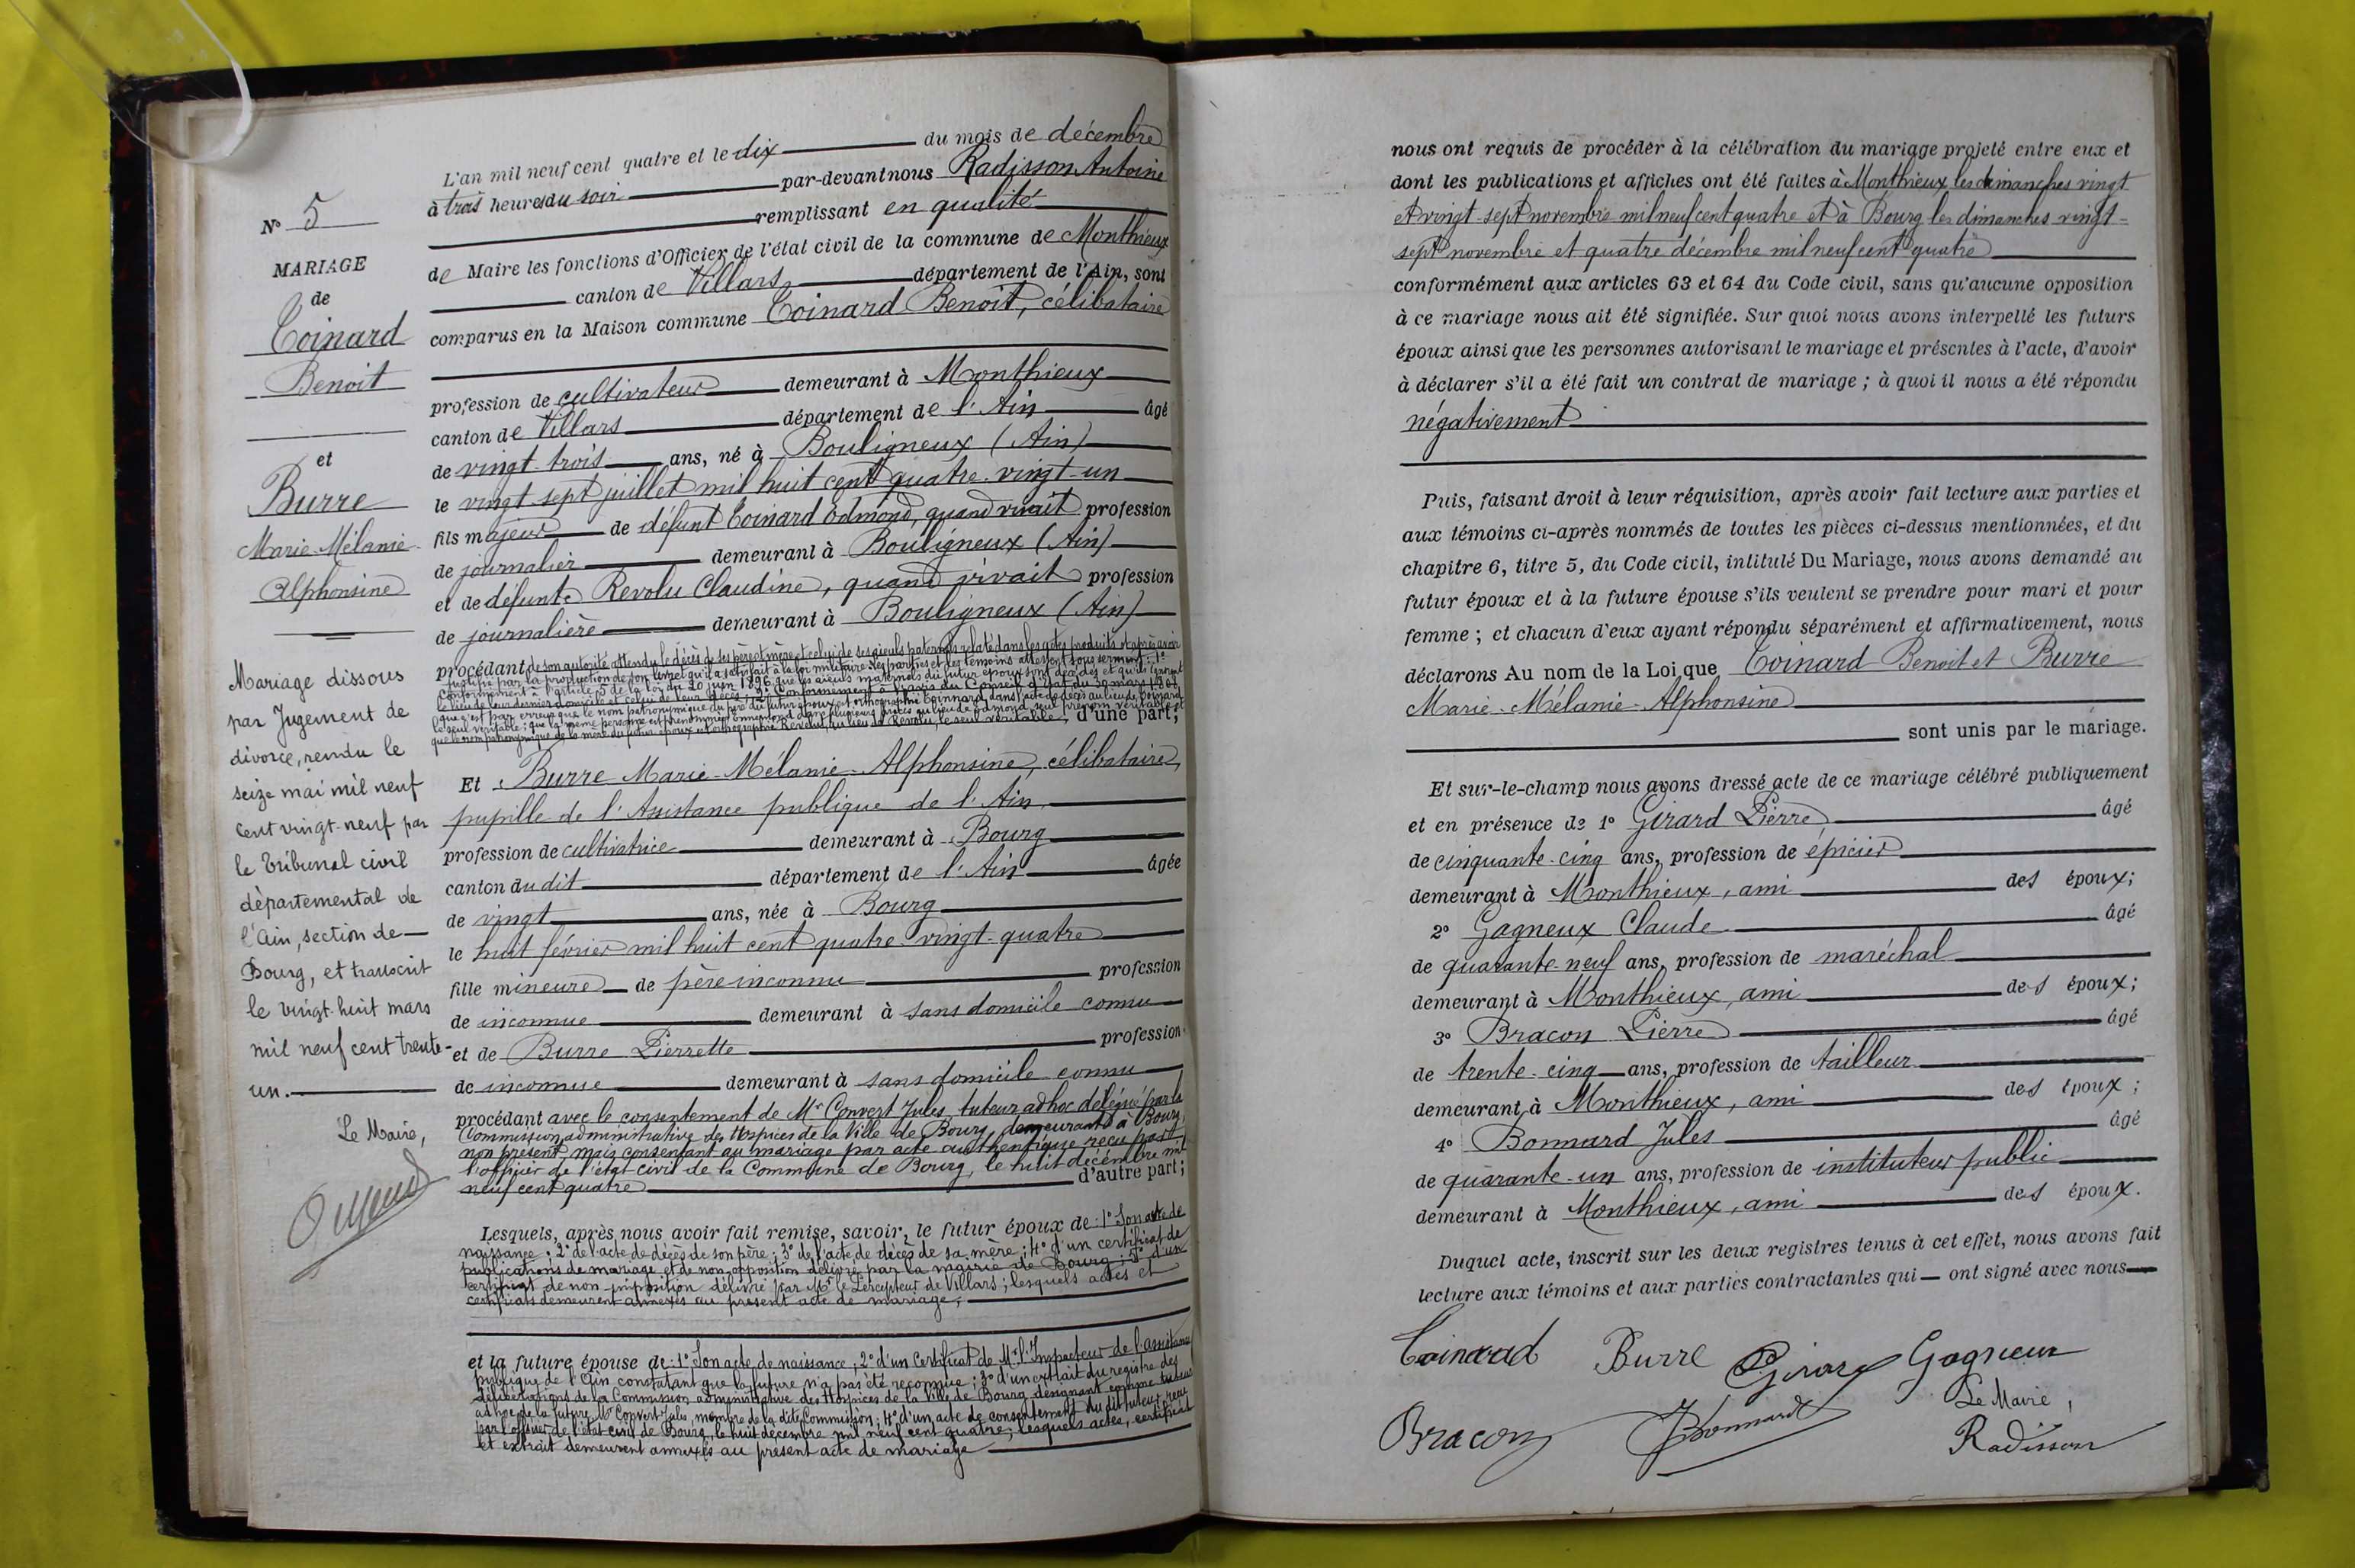 N° 5
MARIAGE
de
Coinard
Benoit
et
Burre
Marie-Mélanie-
Alphonsine
Mariage dissous
par Jugement de
divorce, rendu le
seize mai mil neuf
cent vingt-neuf par
le Tribunal civil
départemental de
l'Ain, section de
Bourg, et transcrit
le vingt-huit mars
mil neuf cent trente-
un.
Le Maire,
L'an mil neuf cent quatre et le dix du mois de décembre
à trois heures du soir par-devant nous Radisson Antoine
remplissant en qualité
de Maire les fonctions d'Officier de l'état civil de la commune de Monthieux
canton de Villars, département de l'Ain, sont
comparus en la Maison commune Coinard Benoit, célibataire
profession de cultivateur demeurant à Monthieux
canton de Villars département de l'Ain âgé
de vingt-trois ans, né à Bouligneux (Ain)
le vingt-sept juillet mil huit cent quatre-vingt-un
fils majeur de défunt Coinard Edmond, quand vivait profession
de journalier demeurant à Bouligneux (Ain)
et de défunte Revolu Claudine, quand vivait profession
de journalière demeurant à Bouligneux (Ain)
procédant de son autorité attendu le décès de ses père et mère et celui de ses aïeuls paternels relaté dans les actes produits et après avoir
justifié par la production de son livret qu'il a satisfait à la loi militaire. Les parties et les témoins attestent sous serment: 1°
conformément à l'article 5 de la loi du 20 juin 1896 que les aïeuls maternels du futur époux sont décédés et qu'ils ignorent
le lieu de leur dernier domicile et celui de leur décès; 2° Conformément à l'avis du Conseil d'Etat du 30 mars 1808,
que c'est par erreur que le nom patronymique du père du futur époux est orthographié Coirnard dans l'acte de décès au lieu de Coinard
le seul véritable; que la même personne est prénommée dans plusieurs actes au lieu de Edmond seul prénom véritable et
que le nom patronymique de la mère du futur époux est orthographié au lieu de Revolu, le seul véritable d'une part;
Et Burre Marie-Mélanie-Alphonsine, célibataire,
pupille de l'Assistance publique de l'Ain,
profession de cultivatrice demeurant à Bourg
canton dudit département de l'Ain âgée
de vingt ans, née à Bourg
le huit février mil huit cent quatre-vingt-quatre
fille mineure de père inconnu profession
de inconnue demeurant à sans domicile connu
et de Burre Pierrette profession
de inconnue demeurant à sans domicile connu
procédant avec le consentement de Mr Convert Jules, tuteur ad hoc délégué par la
Commission administrative des Hospices de la Ville de Bourg, demeurant à Bourg,
non présent, mais consentant au mariage par acte authentique reçu par
l'officier de l'état civil de la Commune de Bourg, le huit décembre mil
neuf cent quatre d'autre part;
Lesquels, après nous avoir fait remise, savoir, le futur époux de: 1° Son acte de
naissance; 2° de l'acte de décès de son père; 3° de l'acte de décès de sa mère; 4° d'un certificat de
publications de mariage et de non-opposition délivré par la mairie de Bourg; 5° d'un
certificat de non-imposition délivré par Mr le Percepteur de Villars; lesquels actes et
certificats demeurent annexés au présent acte de mariage;
et la future épouse de: 1° Son acte de naissance; 2° d'un Certificat de Mr l'Inspecteur de l'assistance
publique de l'Ain constatant que la future n'a pas été reconnue; 3° d'un extrait du registre des
délibérations de la Commission administrative des Hospices de la Ville de Bourg, désignant comme tuteur
ad hoc de la future Mr Convert Jules, membre de la dite Commission; 4° d'un acte de consentement du dit tuteur, reçu
par l'officier de l'état civil de Bourg, le huit décembre mil neuf cent quatre; lesquels actes, certificat
et extrait demeurent annexés au présent acte de mariage
nous ont requis de procéder à la célébration du mariage projeté entre eux et
dont les publications et affiches ont été faites à Monthieux les dimanches vingt
et vingt-sept novembre mil neuf cent quatre et à Bourg les dimanches vingt-
sept novembre et quatre décembre mil neuf cent quatre
conformément aux articles 63 et 64 du Code civil, sans qu'aucune opposition
à ce mariage nous ait été signifiée. Sur quoi nous avons interpellé les futurs
époux ainsi que les personnes autorisant le mariage et présentes à l'acte, d'avoir
à déclarer s'il a été fait un contrat de mariage; à quoi il nous a été répondu
négativement
Puis, faisant droit à leur réquisition, après avoir fait lecture aux parties et
aux témoins ci-après nommés de toutes les pièces ci-dessus mentionnées, et du
chapitre 6, titre 5, du Code civil, intitulé Du Mariage, nous avons demandé au
futur époux et à la future épouse s'ils veulent se prendre pour mari et pour
femme; et chacun d'eux ayant répondu séparément et affirmativement, nous
déclarons Au nom de la Loi que Coinard Benoit et Burre
Marie-Mélanie-Alphonsine
sont unis par le mariage.
Et sur-le-champ nous avons dressé acte de ce mariage célébré publiquement
et en présence de 1° Girard Pierre, âgé
de cinquante-cinq ans, profession de épicier
demeurant à Monthieux, ami des époux;
2° Gagneux Claude âgé
de quarante-neuf ans, profession de maréchal
demeurant à Monthieux, ami des époux;
3° Bracon Pierre âgé
de trente-cinq ans, profession de tailleur
demeurant à Monthieux, ami des époux;
4° Bonnard Jules âgé
de quarante-un ans, profession de instituteur public
demeurant à Monthieux, ami des époux.
Duquel acte, inscrit sur les deux registres tenus à cet effet, nous avons fait
lecture aux témoins et aux parties contractantes qui ont signé avec nous
Coinard Burre Girard Gagneux
Le Maire,
Bracon JBonnard Radisson